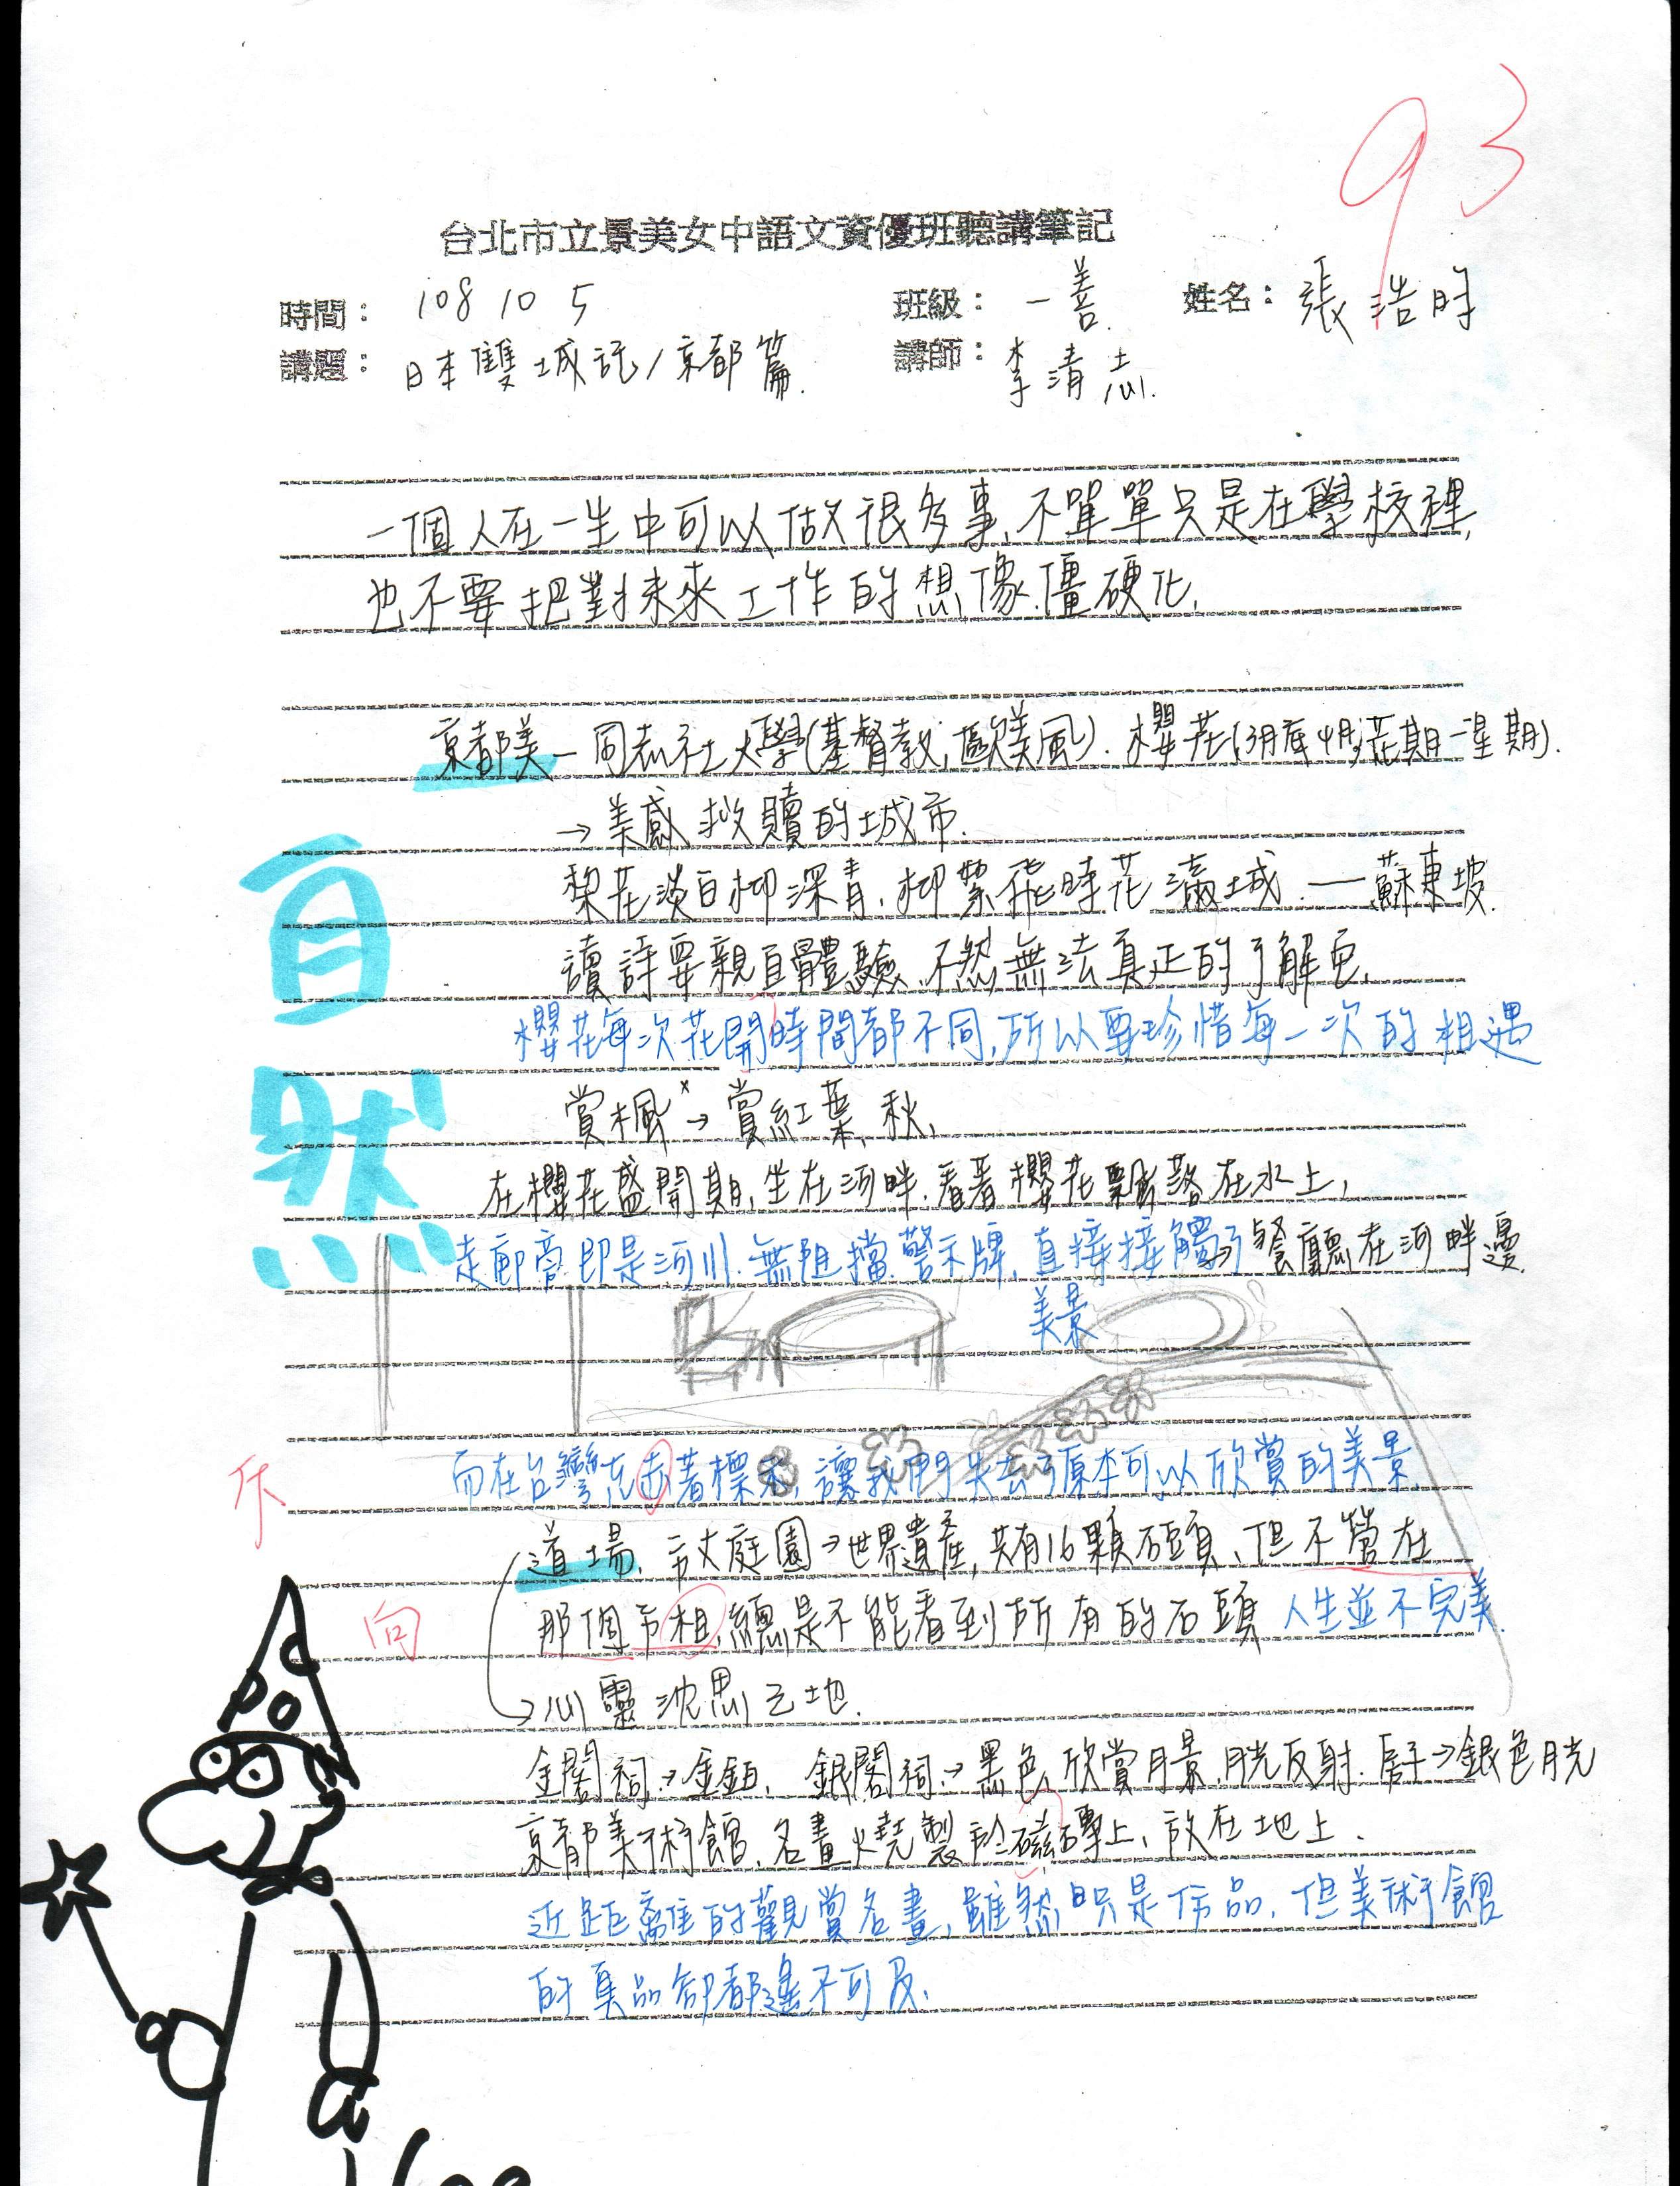 93
台北市立景美女中語文資優班聽講筆記
時間: 108 10 5 班級: 一善. 姓名: 張浩
講題: 日本雙城記/京都篇. 講師: 李清志.
一個人在一生中可以做很多事、不單單只是在學校裡,
也不要把對未來工作的想像僵硬化.
京都美—同志社大學(基督教,歐美風). 櫻花(3月底4月,花期一星期).
→美感救贖的城市.
自然
梨花淡白柳深青, 柳絮飛時花滿城.——蘇東坡.
讀詩要親自體驗, 不然無法真正的了解它.
櫻花每次花開時間都不同,所以要珍惜每一次的相遇
賞楓ˣ→賞紅葉, 秋.
在櫻花盛開期,坐在河畔.看著櫻花飄落在水上,
走廊旁即是河川.無阻擋.警示牌,直接接觸 美景
→餐廳在河畔邊.
而在台灣充 著標示,讓我們失去了原本可以欣賞的美景.
斥
道場、 庭園→世界遺產,共有16顆石頭、但不管在
那個方相,總是不能看到所有的石頭 人生並不完美.
向
→心靈沈思之地.
金閣祠→金鉑、 銀閣祠→黑色,欣賞月景,月光反射.房子→銀色月光
京都美術館, 名畫燒製於磁磚上, 放在地上.
近距離的觀賞名畫,雖然只是 品,但美術館
的真品卻都遙不可及.